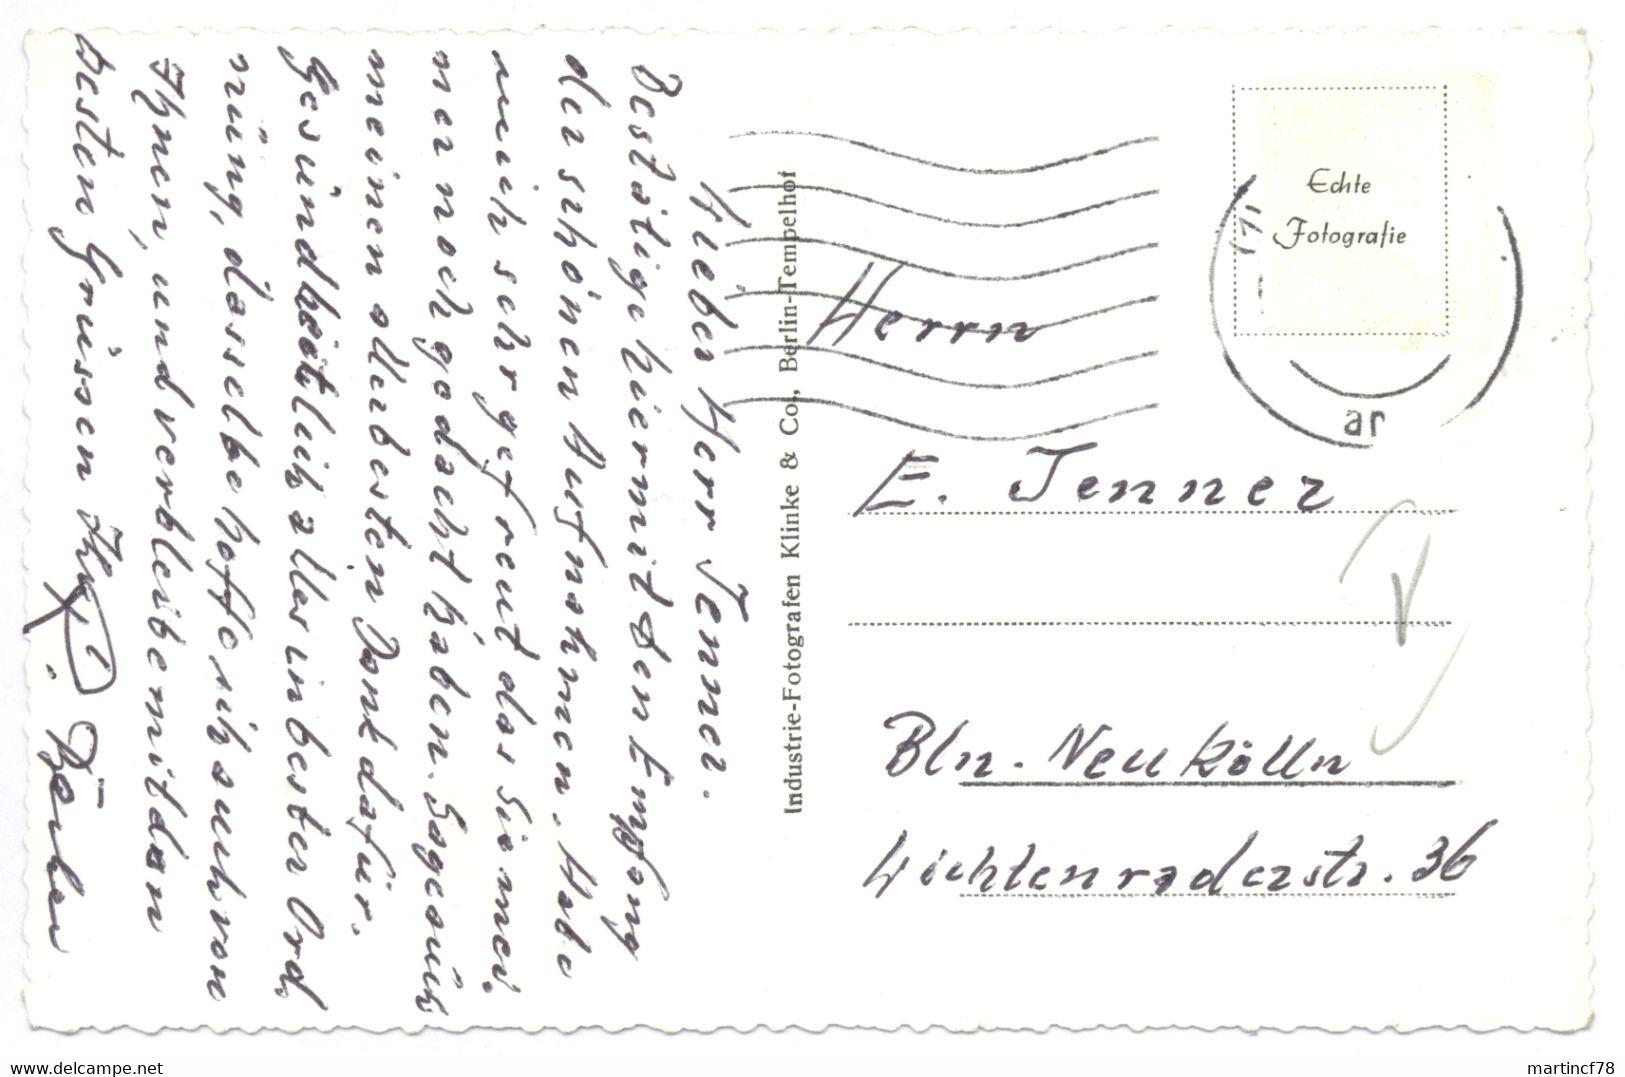 Lieber Herr Jenner.
Bestätige hiermit den Empfang
der schönen Aufnahmen. Habe
mich sehr gefreut das Sie mei
ner noch gedacht haben. Sage Ih
meinen allerbesten Dank dafür.
Gesundheitlich alles in bester Ord
nüng, dasselbe hoffe ich auch von
Ihnen, und verbleibe mit den
besten Grüssen Ihr
Industrie-Fotografen Klinke & Co., Berlin-Tempelhof
Echte
Fotografie
ar
Herrn
E. Jenner
Bln. Neukölln
Lichtenraderstr. 36
www.delcampe.net
martincf78